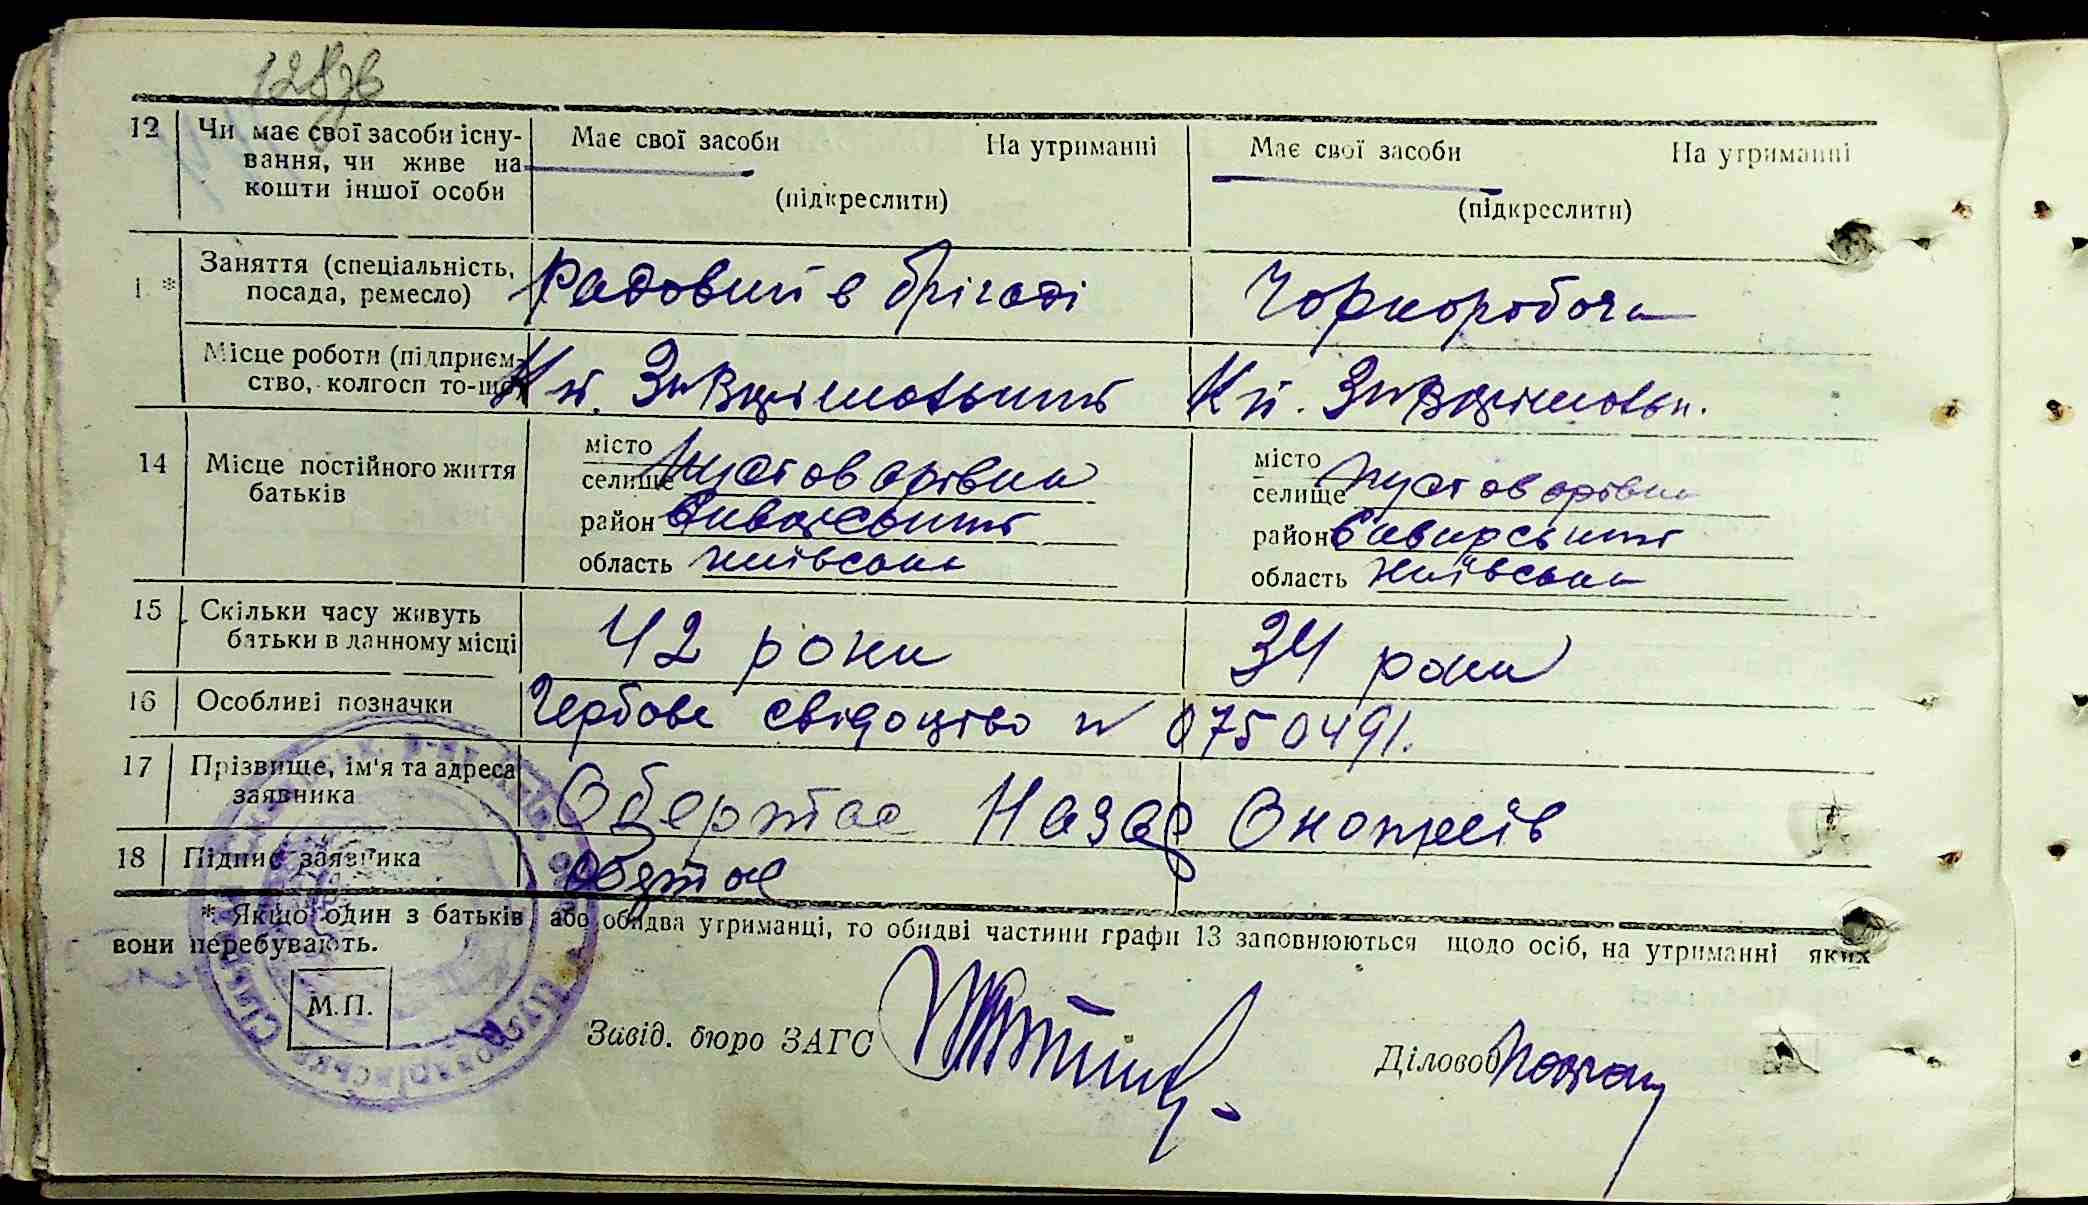 128зв
12 Чи має свої засоби існу- Має свої засоби На утриманні Має свої засоби На утриманні
вання, чи живе на
кошти іншої особи (підкреслити) (підкреслити)
1 * Заняття (спеціальність, Радовий в брігаді Чорноробоча
посада, ремесло)
Місце роботи (підприєм-
ство, колгосп то-що)
14 Місце постійного життя місто Пустоварівка місто Пустоварівка
батьків селище селище
район район Сквирський
область Київська область Київська
15 Скільки часу живуть 42 роки 34 роки
батьки в данному місці
16 Особливі позначки Гербове свідоцтво № 0750491.
17 Прізвище, ім'я та адреса Обертас Назар
заявника
18 Підпис заявника
* Якщо один з батьків, або обидва утриманці, то обидві частини графи 13 заповнюються щодо осіб, на утриманні яких
вони перебувають.
М.П.
Завід. бюро ЗАГС Діловод